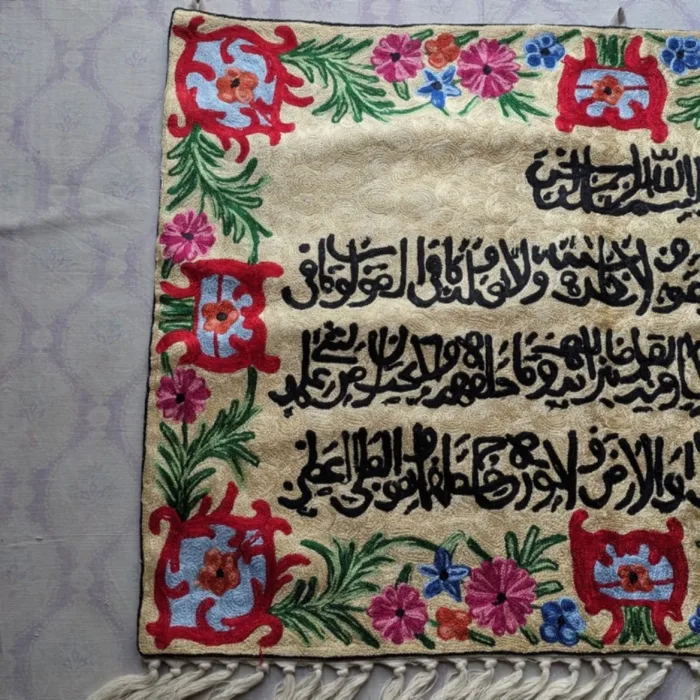 بسم الله الرحمن الرحيم
لا تاخذه سنة ولا نوم له ما فى السموت وما فى
يعلم ما بين ايديهم وما خلفهم ولا يحيطون بشئ من علمه
والارض ولا يوده حفظهما وهو العلى العظيم